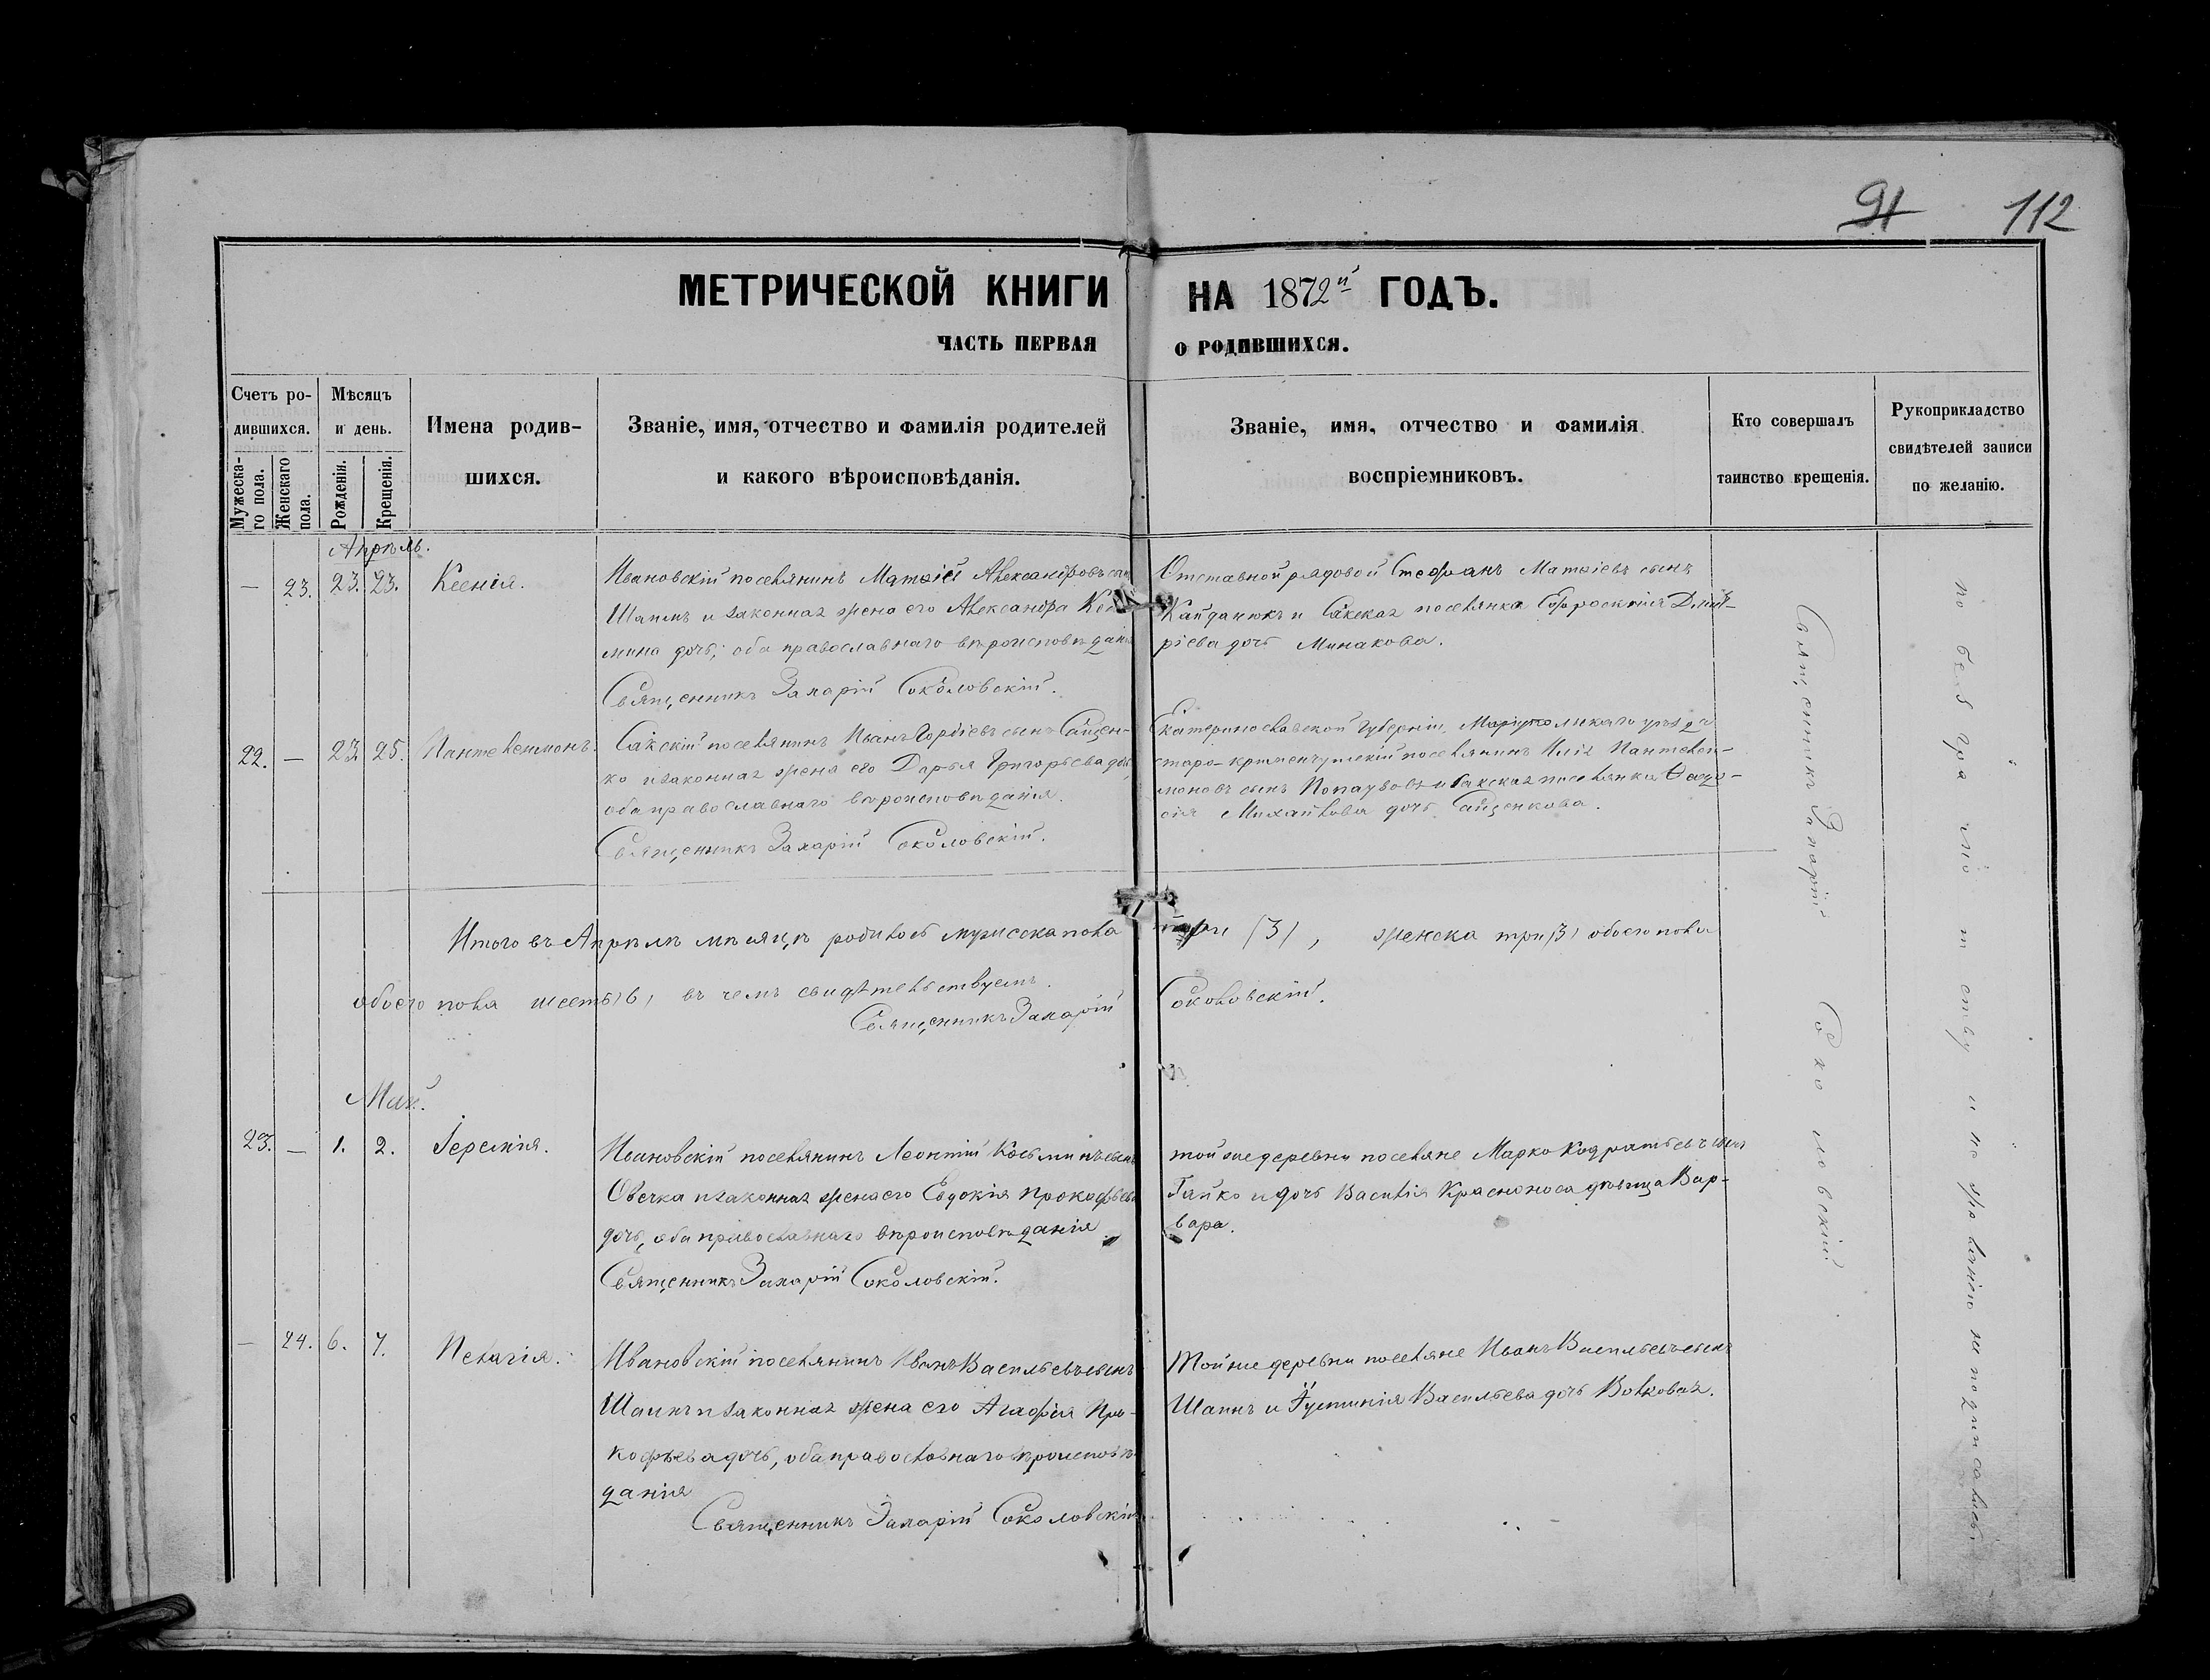 91 112
МЕТРИЧЕСКОЙ КНИГИ НА 1872й ГОДЪ.
ЧАСТЬ ПЕРВАЯ О РОДИВШИХСЯ.
Счетъ ро-
дившихся.
Мужеска-
го пола.
Женскаго
пола.
Мѣсяцъ
и день.
Рожденія.
Крещенія.
Имена родив-
шихся.
Званіе, имя, отчество и фамилія родителей
и какого вѣроисповѣданія.
Званіе, имя, отчество и фамилія
воспріемниковъ.
Кто совершалъ
таинство крещенія.
Рукоприкладство
свидѣтелей записи
по желанію.
Апрѣль.
— 23. 23. 23. Ксенія.
Ивановскій поселянинъ Матѳій Александровъ сын
Шапинъ и законная жена его Александра
мина дочь, оба православнаго вѣроисповѣданія
Священникъ Захарій Соколовскій.
Отставной рядовой Стефанъ Матѳіевъ сынъ
Кайданюкъ и Сакская поселянка Ефросинія Дмит-
ріева дочь Минакова.
22. — 23. 25. Пантелеимонъ.
Сакскій поселянинъ Иванъ Гордіевъ сынъ Сайцен-
ко и законная жена его Дарья Григорьева дочь,
оба православнаго вѣроисповѣданія.
Священникъ Захарій Соколовскій.
Екатеринославской Губерніи, Маріупольскаго уѣзда
старо-кременчугскій поселянинъ Илія Пантелеи-
моновъ сынъ и Сакская поселянка Ѳеодо-
сія Михайлова дочь Сайценкова.
Итого въ Апрѣлѣ мѣсяцѣ родилось мужеска пола три (3), женска три (3) обоего пола
обоего пола шесть (6) въ чемъ свидѣтельствуемъ.
Священникъ Захарій Соколовскій.
Май.
23. — 1. 2. Іеремія.
Ивановскій поселянинъ Леонтій Косминъ сынъ
Овечка и законная жена его Евдокія Прокофьева
дочь, оба православнаго вѣроисповѣданія
Священникъ Захарій Соколовскій.
той же деревни поселяне Марко Кодратьевъ сынъ
Гайко и дочь Василія Красноноса дѣвица Вар-
вара.
— 24. 6. 7. Пелагія.
Ивановскій поселянинъ Иванъ Васильевъ сынъ
Шапинъ и законная жена его Агафія Про-
кофьева дочь, оба православнаго вѣроисповѣ-
данія
Священникъ Захарій Соколовскій
Той же деревни поселяне Иванъ Васильевъ сынъ
Шапинъ и Іустинія Васильева дочь Волковая.
Священникъ Захарій Соколовскій
по безграмотству и не желанію не подписались.